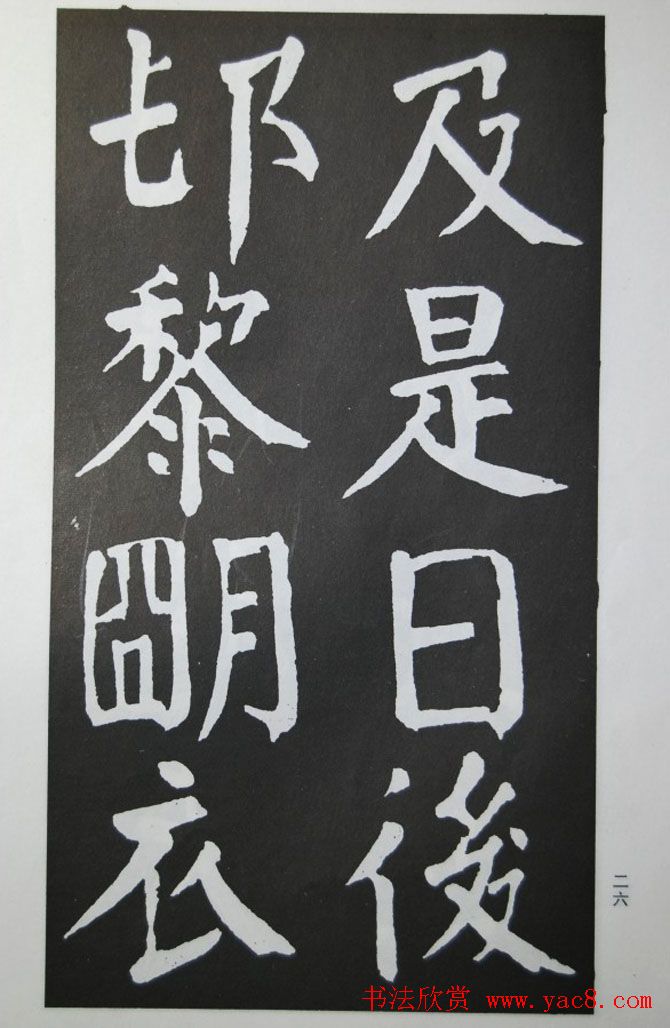 及是日後
黎朙衣
二六
书法欣赏 www.yac8.com